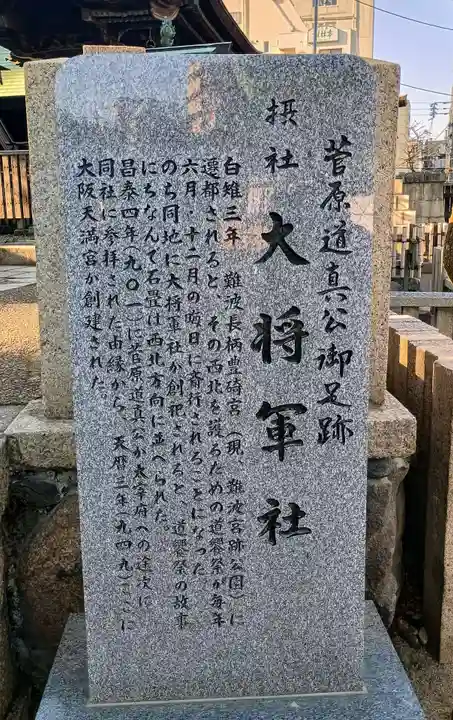 菅原道真公御足跡
摂社 大将軍社
白雉三年 難波長柄豊碕宮(現、難波宮跡公園)に
遷都されると、その西北を護るための道饗祭が毎年
六月・十二月の晦日に斎行されることになった
のち同地に大将軍社が創祀されると 道饗祭の故事
にちなんで石畳は西北方向に並べられた。
昌泰四年(九〇一)菅原道真公が太宰府への途次に
同社に参拝された由縁から、天暦三年(九四九)ここに
大阪天満宮が創建された。